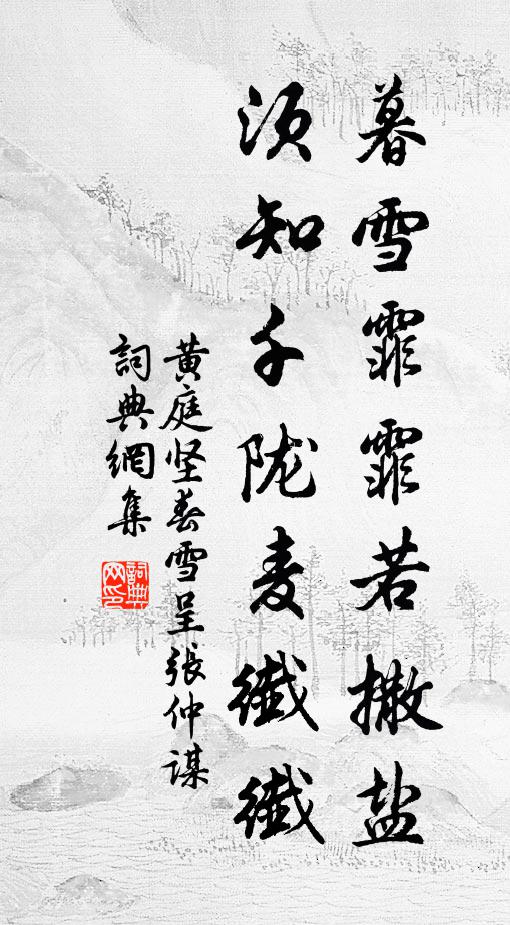 暮雪霏霏若撒盐
须知千陇麦纤纤
黄庭坚春雪呈張仲谋
詞典網集
詞典网印